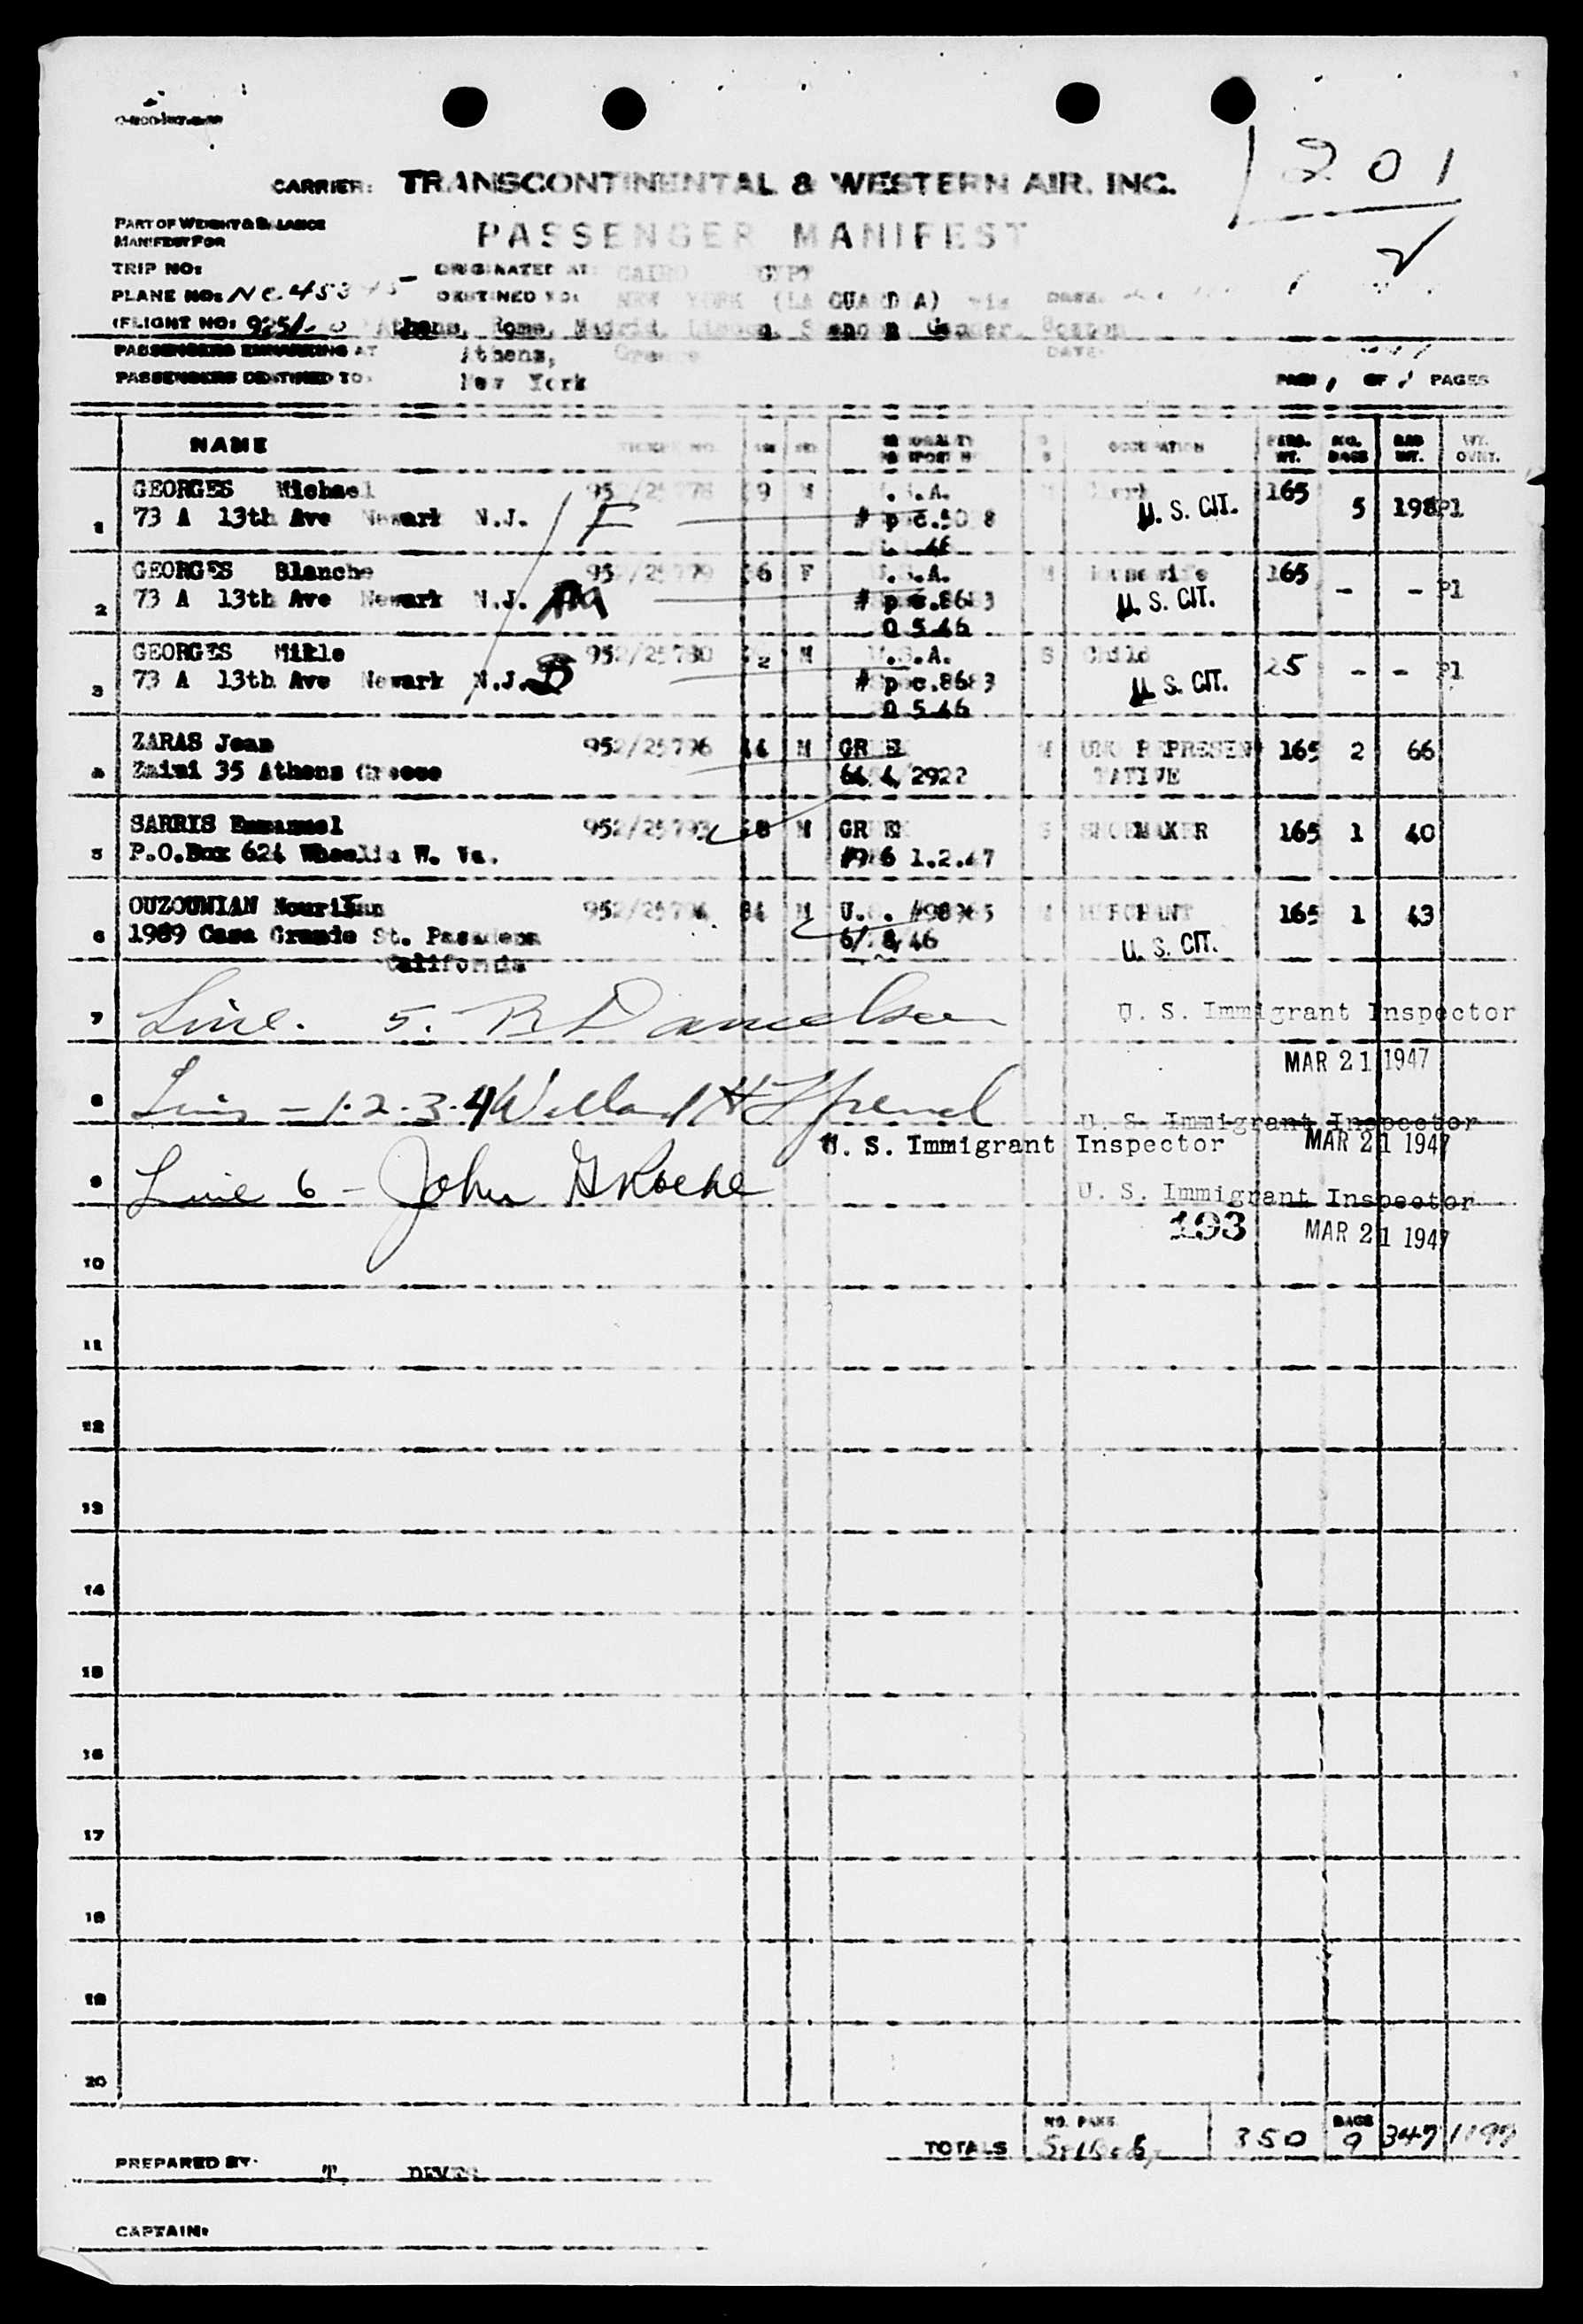 1201
CARRIER: TRANSCONTINENTAL & WESTERN AIR. INC.
PART OF WEIGHT & BALANCE
MANIFEST FOR
PASSENGER MANIFEST
TRIP NO:
ORIGINATED AT: CAIRO EGYPT
PLANE NO: NC.45345
DESTINED TO: NEW YORK (LA GUARDIA) via DATE:
(FLIGHT NO: 925/ Athens, Rome, Madrid, Lisbon, Shannon, Gander, Boston
PASSENGERS EMBARKING AT Athens, Greece DATE:
PASSENGERS DESTINED TO: New York PAGE 1 OF 1 PAGES
NAME TICKET NO. AGE SEX NATIONALITY OCCUPATION PERS. WT. NO. BAGS BAG WT. WT. OVNT.
PASSPORT NO
GEORGES Michael 952/25778 9 M U.S.A. M Clerk 165
1 73 A 13th Ave Newark N.J. F U. S. CIT. 5 198 Pl
GEORGES Blanche 952/25779 6 F U.S.A. M Housewife 165
2 73 A 13th Ave Newark N.J. M U. S. CIT. - - Pl
GEORGES Mikle 952/25780 2 M U.S.A. S Child 25 - - Pl
3 73 A 13th Ave Newark N.J. B U. S. CIT.
ZARAS Jean 952/25796 44 M GREEK M UNO REPRESEN 165 2 66
4 Zaimi 35 Athens Greece 2922 TATIVE
SARRIS Emmanuel 952/25793 8 M GREEK S SHOEMAKER 165 1 40
5 P.O.Box 624 Wheelin W. Va. 1.2.47
OUZOUNIAN Nourijan 34 M U.S. M MERCHANT 165 1 43
6 1989 Casa Grande St. Pasadena 46 U. S. CIT.
California
7 Line. 5. B Danielsen U. S. Immigrant Inspector
MAR 21 1947
8 Line - 1.2.3.4 Willard H U. S. Immigrant Inspector
U. S. Immigrant Inspector MAR 21 1947
9 Line 6 - John G Roche U. S. Immigrant Inspector
193 MAR 21 1947
10
11
12
13
14
15
16
17
18
19
20
TOTALS NO. PAX'S 850 BAGS 9 347 1197
PREPARED BY: T.
CAPTAIN: